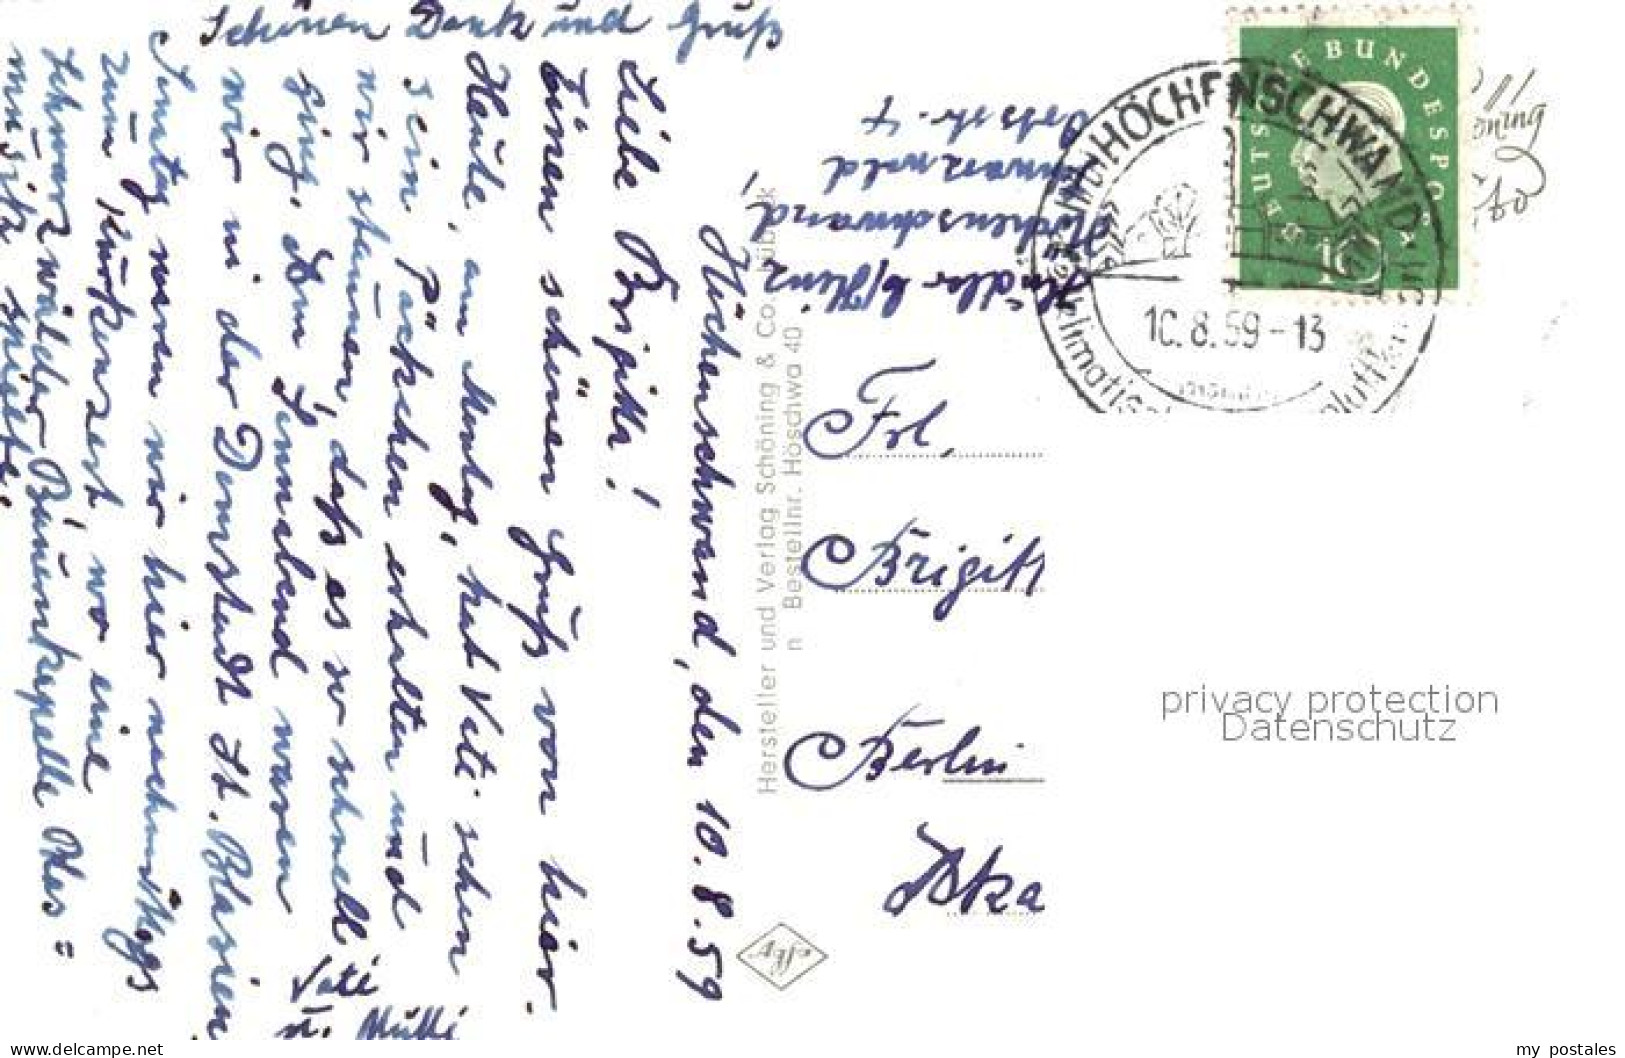 Höchenschwand, den 10.8.59
Liebe Brigitta!
Einen schönen Gruß von hier.
Heute, am Montag, hat Vati schon
sein Päckchen erhalten und
wir staunen, daß es so schnell
ging. Am Sonnabend waren
wir in der Domstadt St. Blasien
Sonntag waren wir hier nachmittags
zum Kurkonzert, wo eine
Schwarzwälder Bauernkapelle Blas=
musik spielte.
Schönen Dank und Gruß
Vati
u. Mutti
Höchenschwand
Schwarzwald
Ortsstr. 4
Hersteller und Verlag Schöning & Co., Lübeck
Bestellnr. Höschwa 40
Frl.
Brigitt
Berlin
HÖCHENSCHWAND
10.8.59-13
DEUTSCHE BUNDESPOST
10
privacy protection
Datenschutz
delcampe.net
my_postales